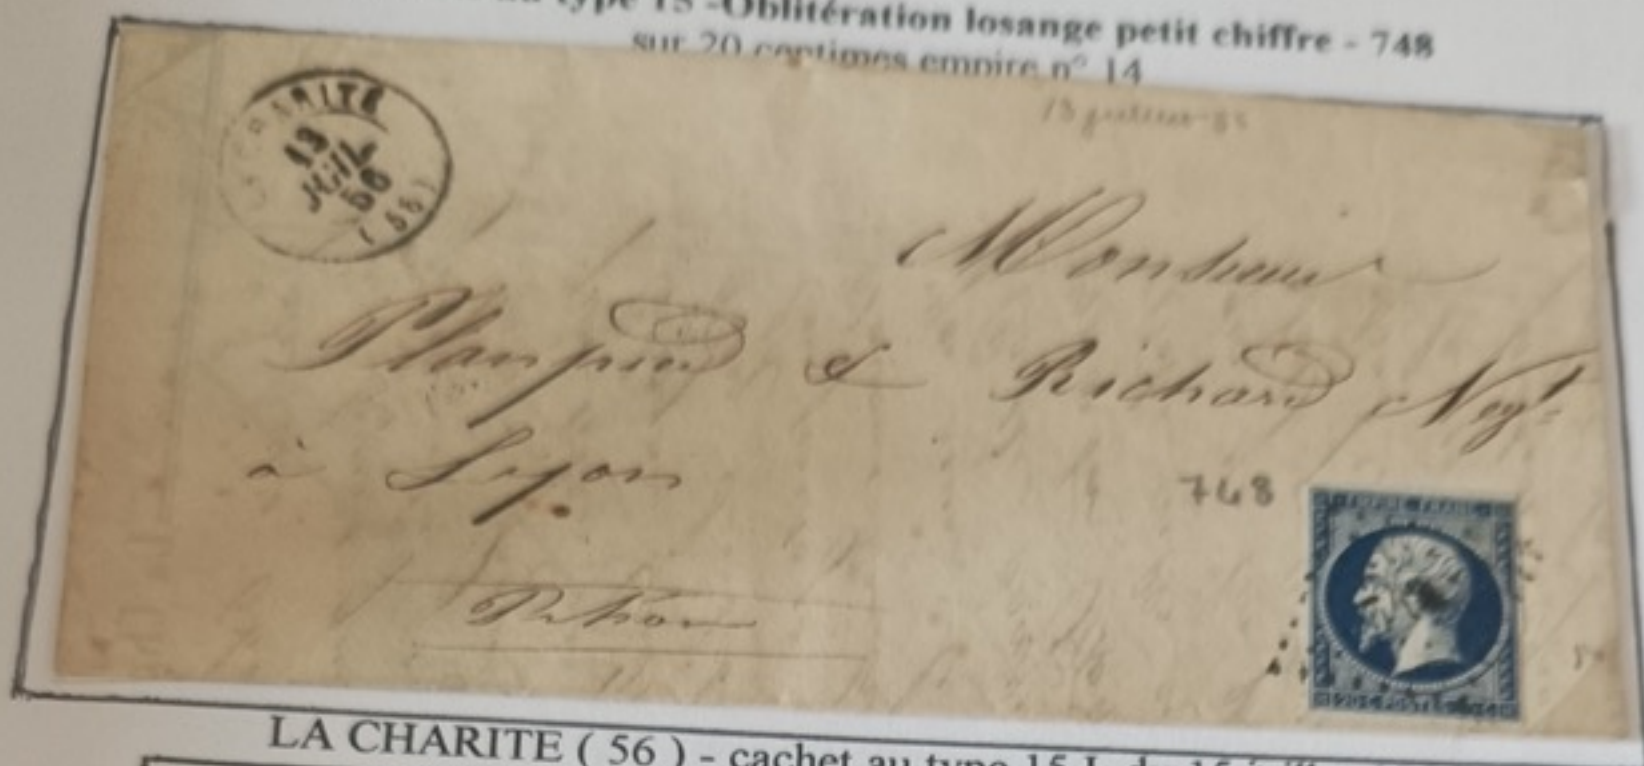 type 15 -Oblitération losange petit chiffre - 748
sur 20 centimes empire n° 14
LA CHARITÉ
13
JUIL
56
( 56 )
Monsieur
& Richard Negt
à Lyon
748
EMPIRE FRANC
20 C POSTES 20 C
LA CHARITE ( 56 ) - cachet au type 15